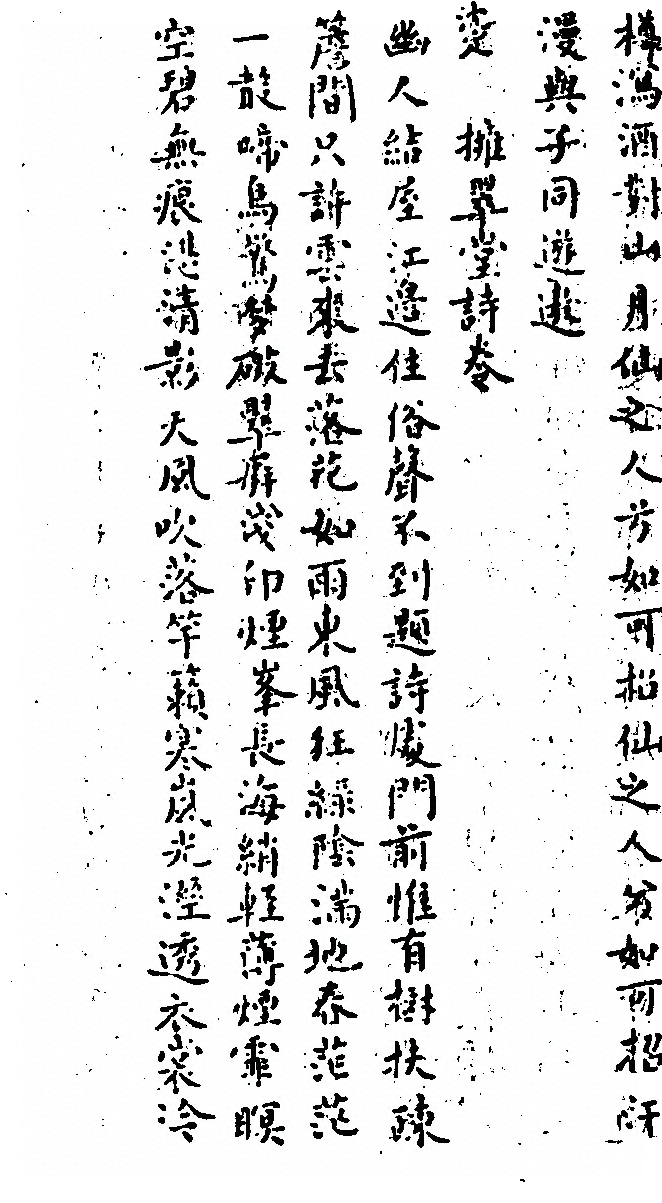 樽瀉酒對山月仙之人兮如可招仙之人兮如可招
漫與子同遊遨
擁翠堂詩卷
幽人結屋江邊住俗聲不到題詩處門前惟有樹扶疎
簷間只許雲來去落花如雨東風狂綠陰滿地春茫茫
一聲啼鳥驚夢破翠痕淺印煙峯長海綃輕薄煙霏暝
空碧無痕浸清影天風吹落竽籟寒嵐光溼透衣裳冷